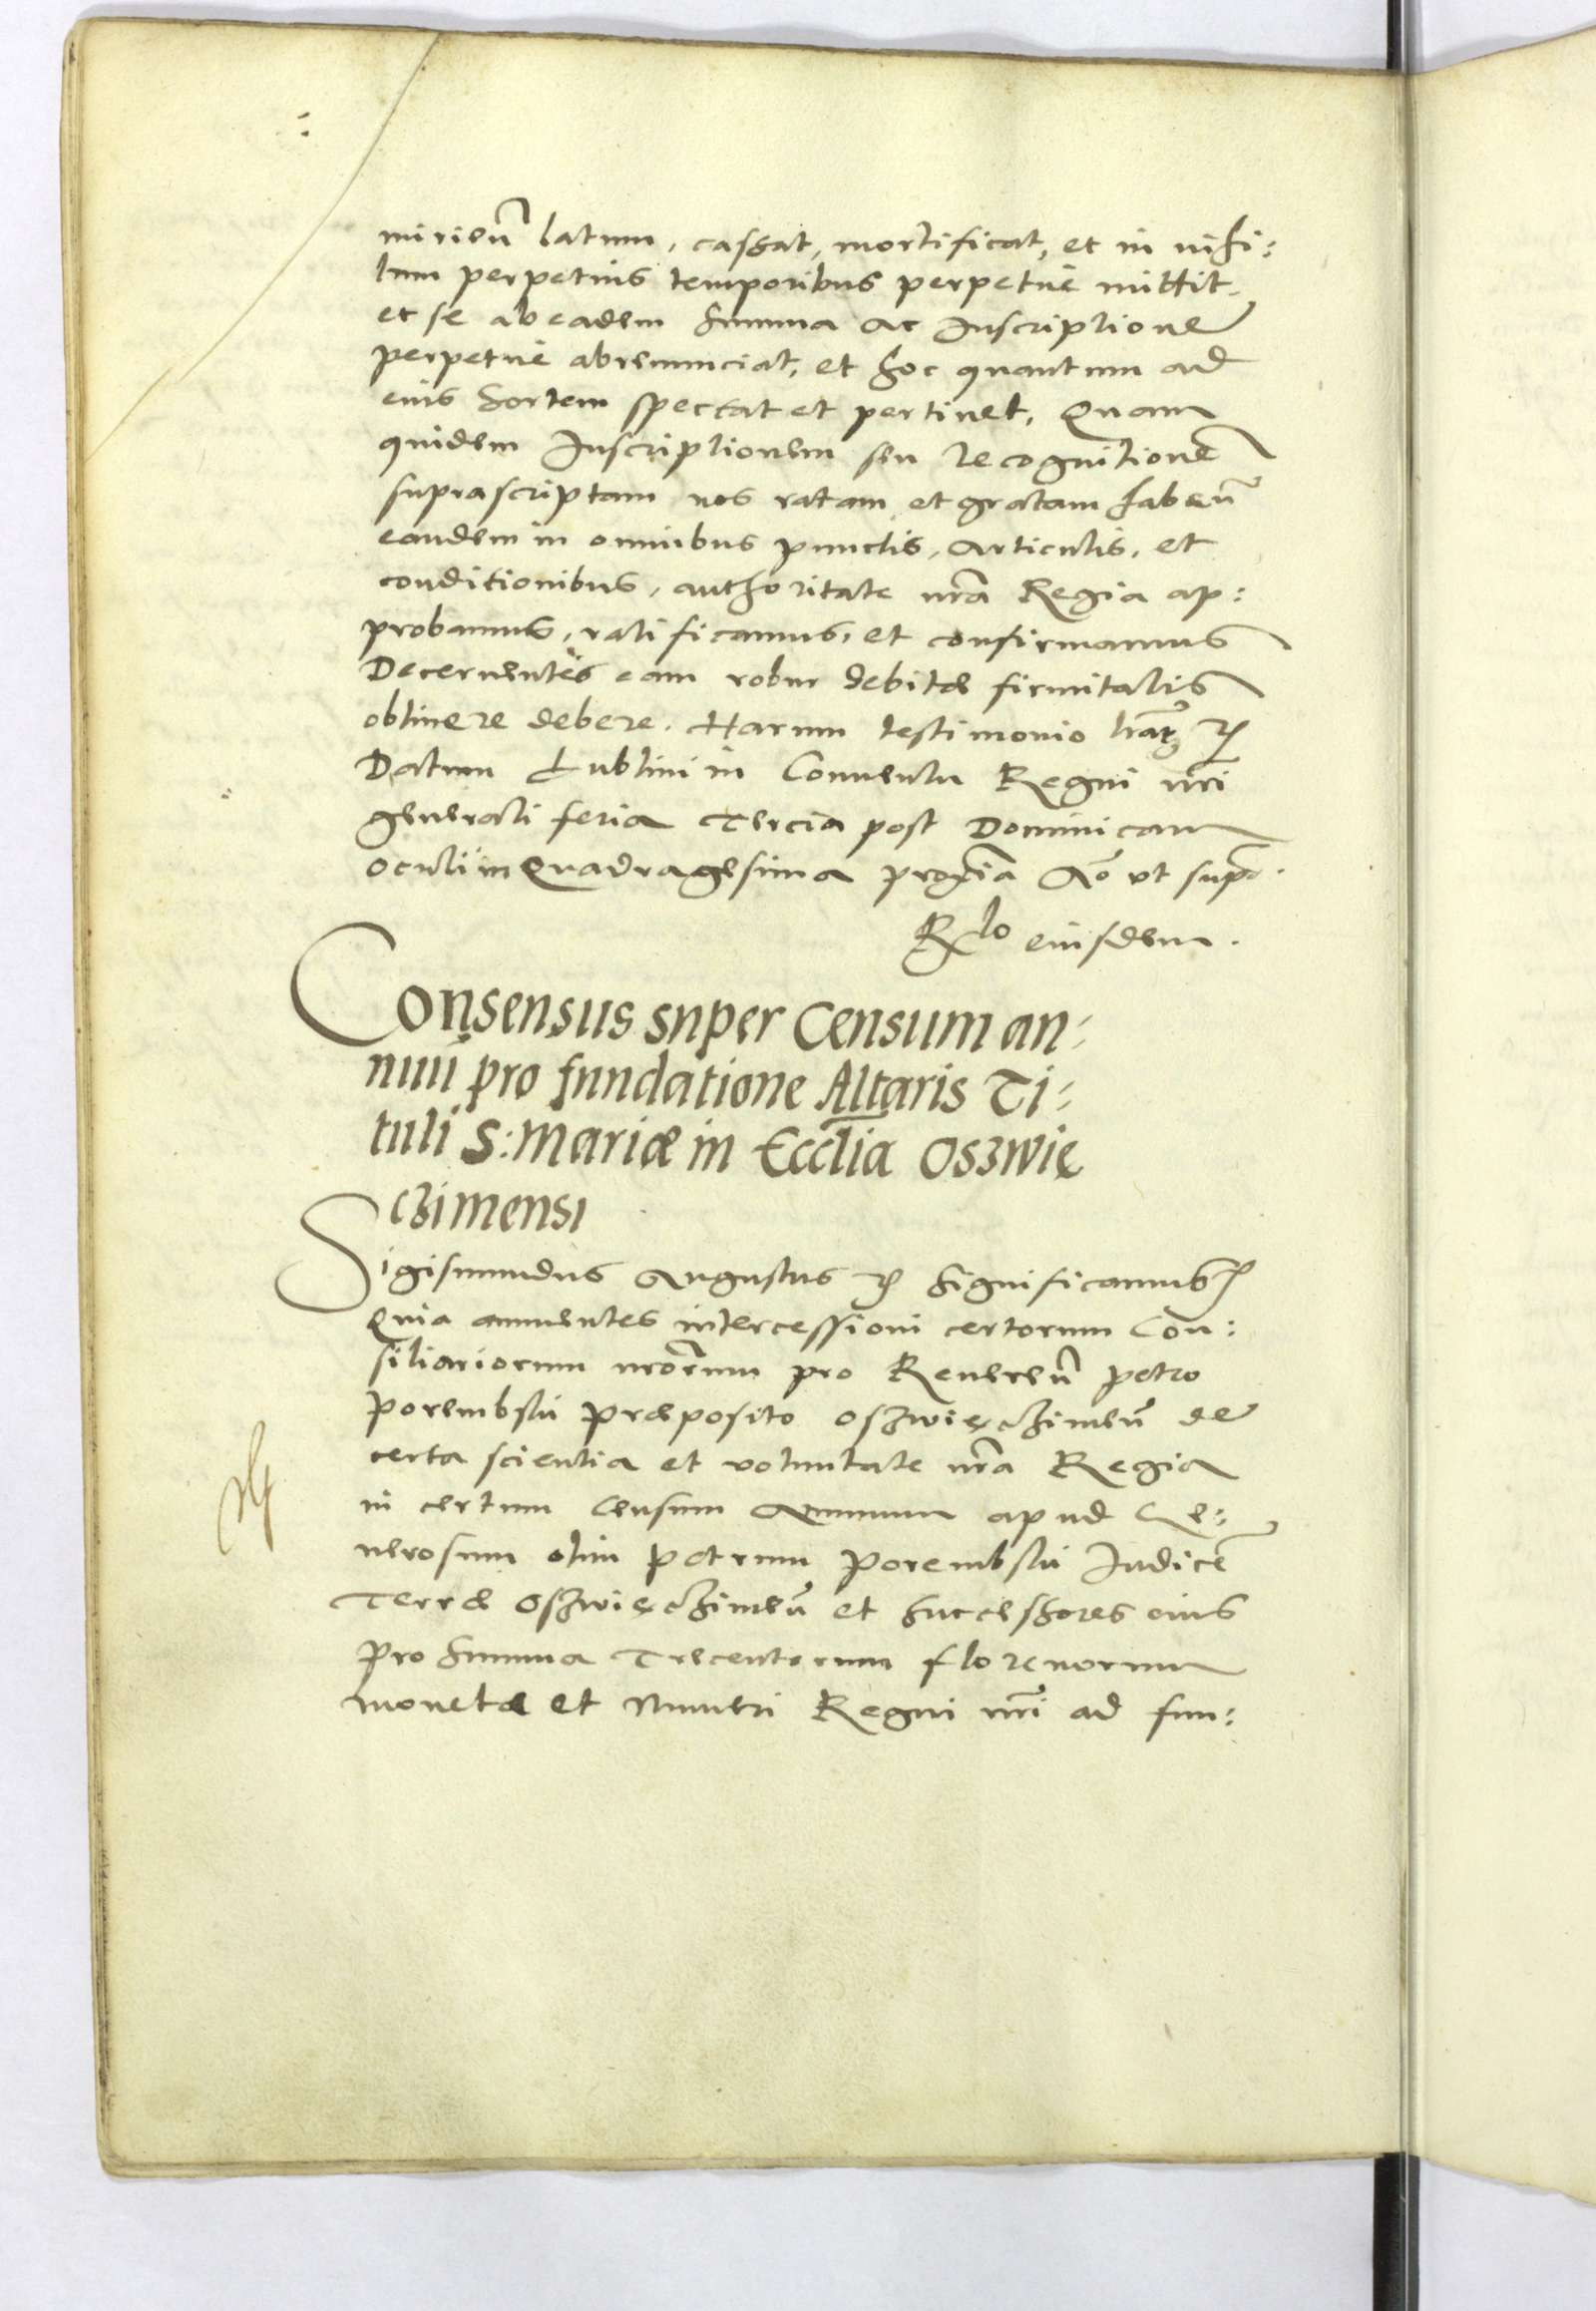 mirieñ latum, cassat, mortificat, et in nihi:
lum perpetuis temporibus perpetue mittit,
et se ab eadem summa ac Inscriptione
perpetue abrenunciat, et hoc quantum ad
eius sortem spectat et pertinet, Quam
quidem Inscriptionem seu recognitionē
suprascriptam nos ratam et gratam habeñ
eandem in omnibus punctis, articulis, et
conditionibus, authoritate nrã Regia ap:
probamus, ratificamus, et confirmamus
Decernentes eam robur debitæ firmitatis
obtinere debere. Harum testimonio lrarꝫ ꝛc
Datum Lublini in Conventu Regni nrĩ
generali feria Tercia post Dominicam
oculi in Quadragesima proxĩa Aõ vt supᵃ.
Rlo eiusdem.
Consensus super Censum an:
nuũ pro fundatione Altaris Ti:
tuli S: Mariæ in Ecclĩa Oszwię
czimensi
Sigismundus Augustus ꝛc Significamus ꝛc
Quia annuentes intercessioni certorum Con:
siliariorum nrõrum pro Revereñ Petro
Porembski Præposito Oszwięczimeñ de
certa scientia et voluntate nrã Regia
in certum Censum Annuum apud Ge:
nerosum olim Petrum Porembski Iudicē
Terræ Oszwięczimeñ et Successores eius
pro summa Trecentorum florenorum
monetæ et Numeri Regni nrĩ ad fun: